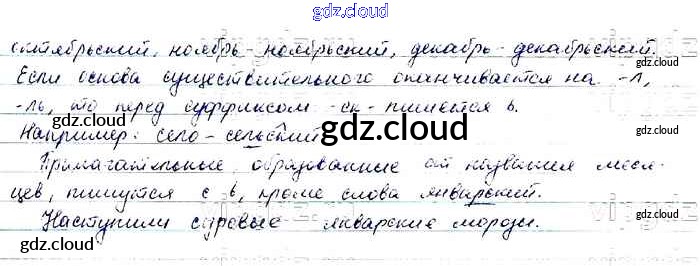 gdz.cloud
октябрьский, ноябрь - ноябрьский, декабрь - декабрьский.
Если основа существительного оканчивается на -л,
-ль, то перед суффиксом -ск- пишется ь.
Например: село - сельский
gdz.cloud
gdz.cloud
Прилагательные, образованные от названия меся-
цев, пишутся с ь, кроме слова январский.
Наступили суровые январские морозы.
gdz.cloud
gdz.cloud